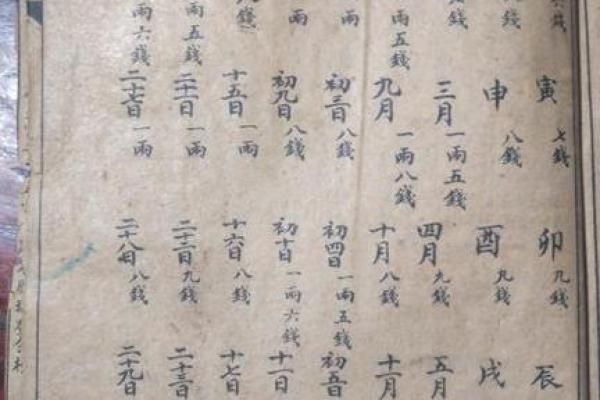 錢 寅 七錢 卯 九錢 辰
錢 申 八錢 酉 九錢 戌
錢 三月 一兩五錢 四月 九錢 五月
兩五錢 九月 一兩八錢 十月 八錢 十一月
兩 初三日 八錢 初四日 一兩五錢 初五日
兩 初九日 八錢 初十日 一兩六錢 十一日
錢 十五日 一兩 十六日 八錢 十七日
兩五錢 二十一日 一兩 二十二日 九錢 二十三日
兩六錢 二十七日 一兩 二十八日 八錢 二十九日